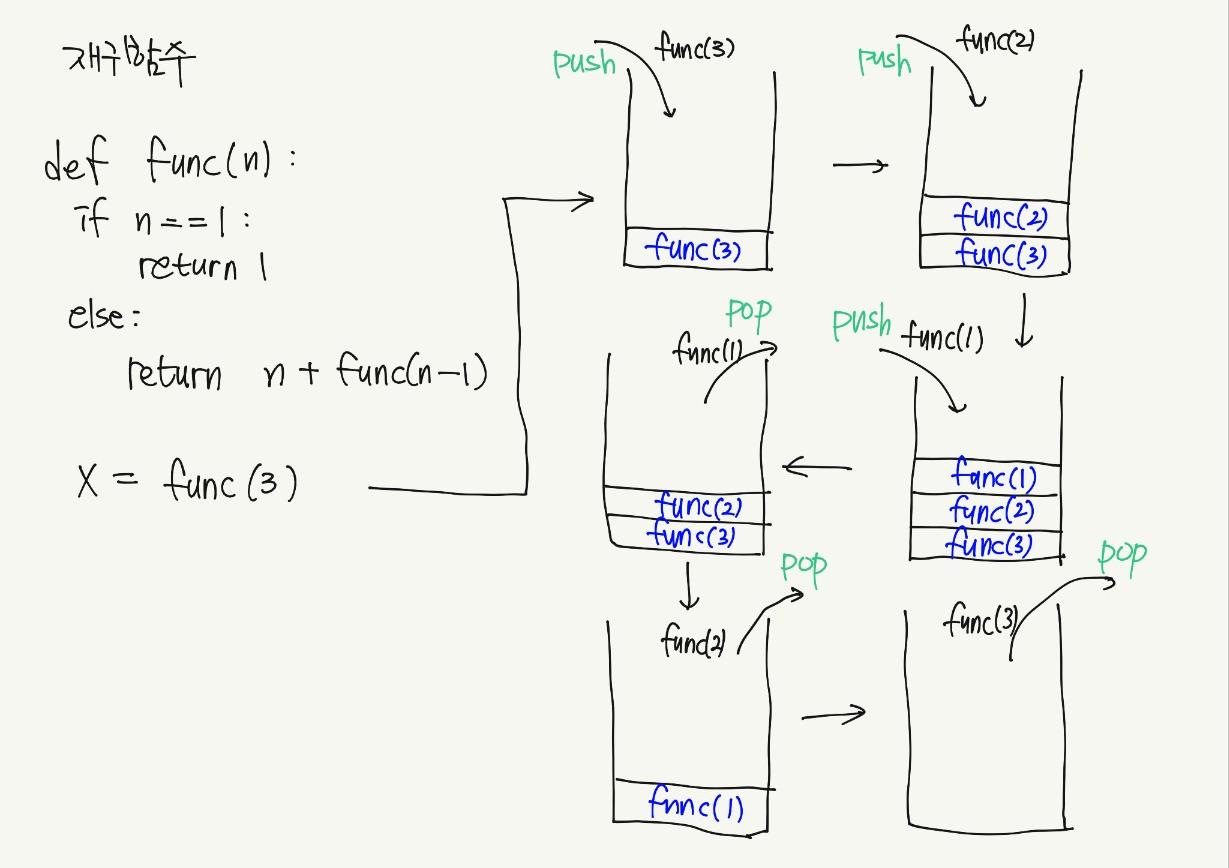 재귀함수
def func(n):
if n==1:
return 1
else:
return n + func(n-1)
X = func(3)
push func(3)
func(3)
push func(2)
func(2)
func(3)
push func(1)
func(1)
func(2)
func(3)
pop
func(1)
func(2)
func(3)
pop
func(2)
func(1)
pop
func(3)